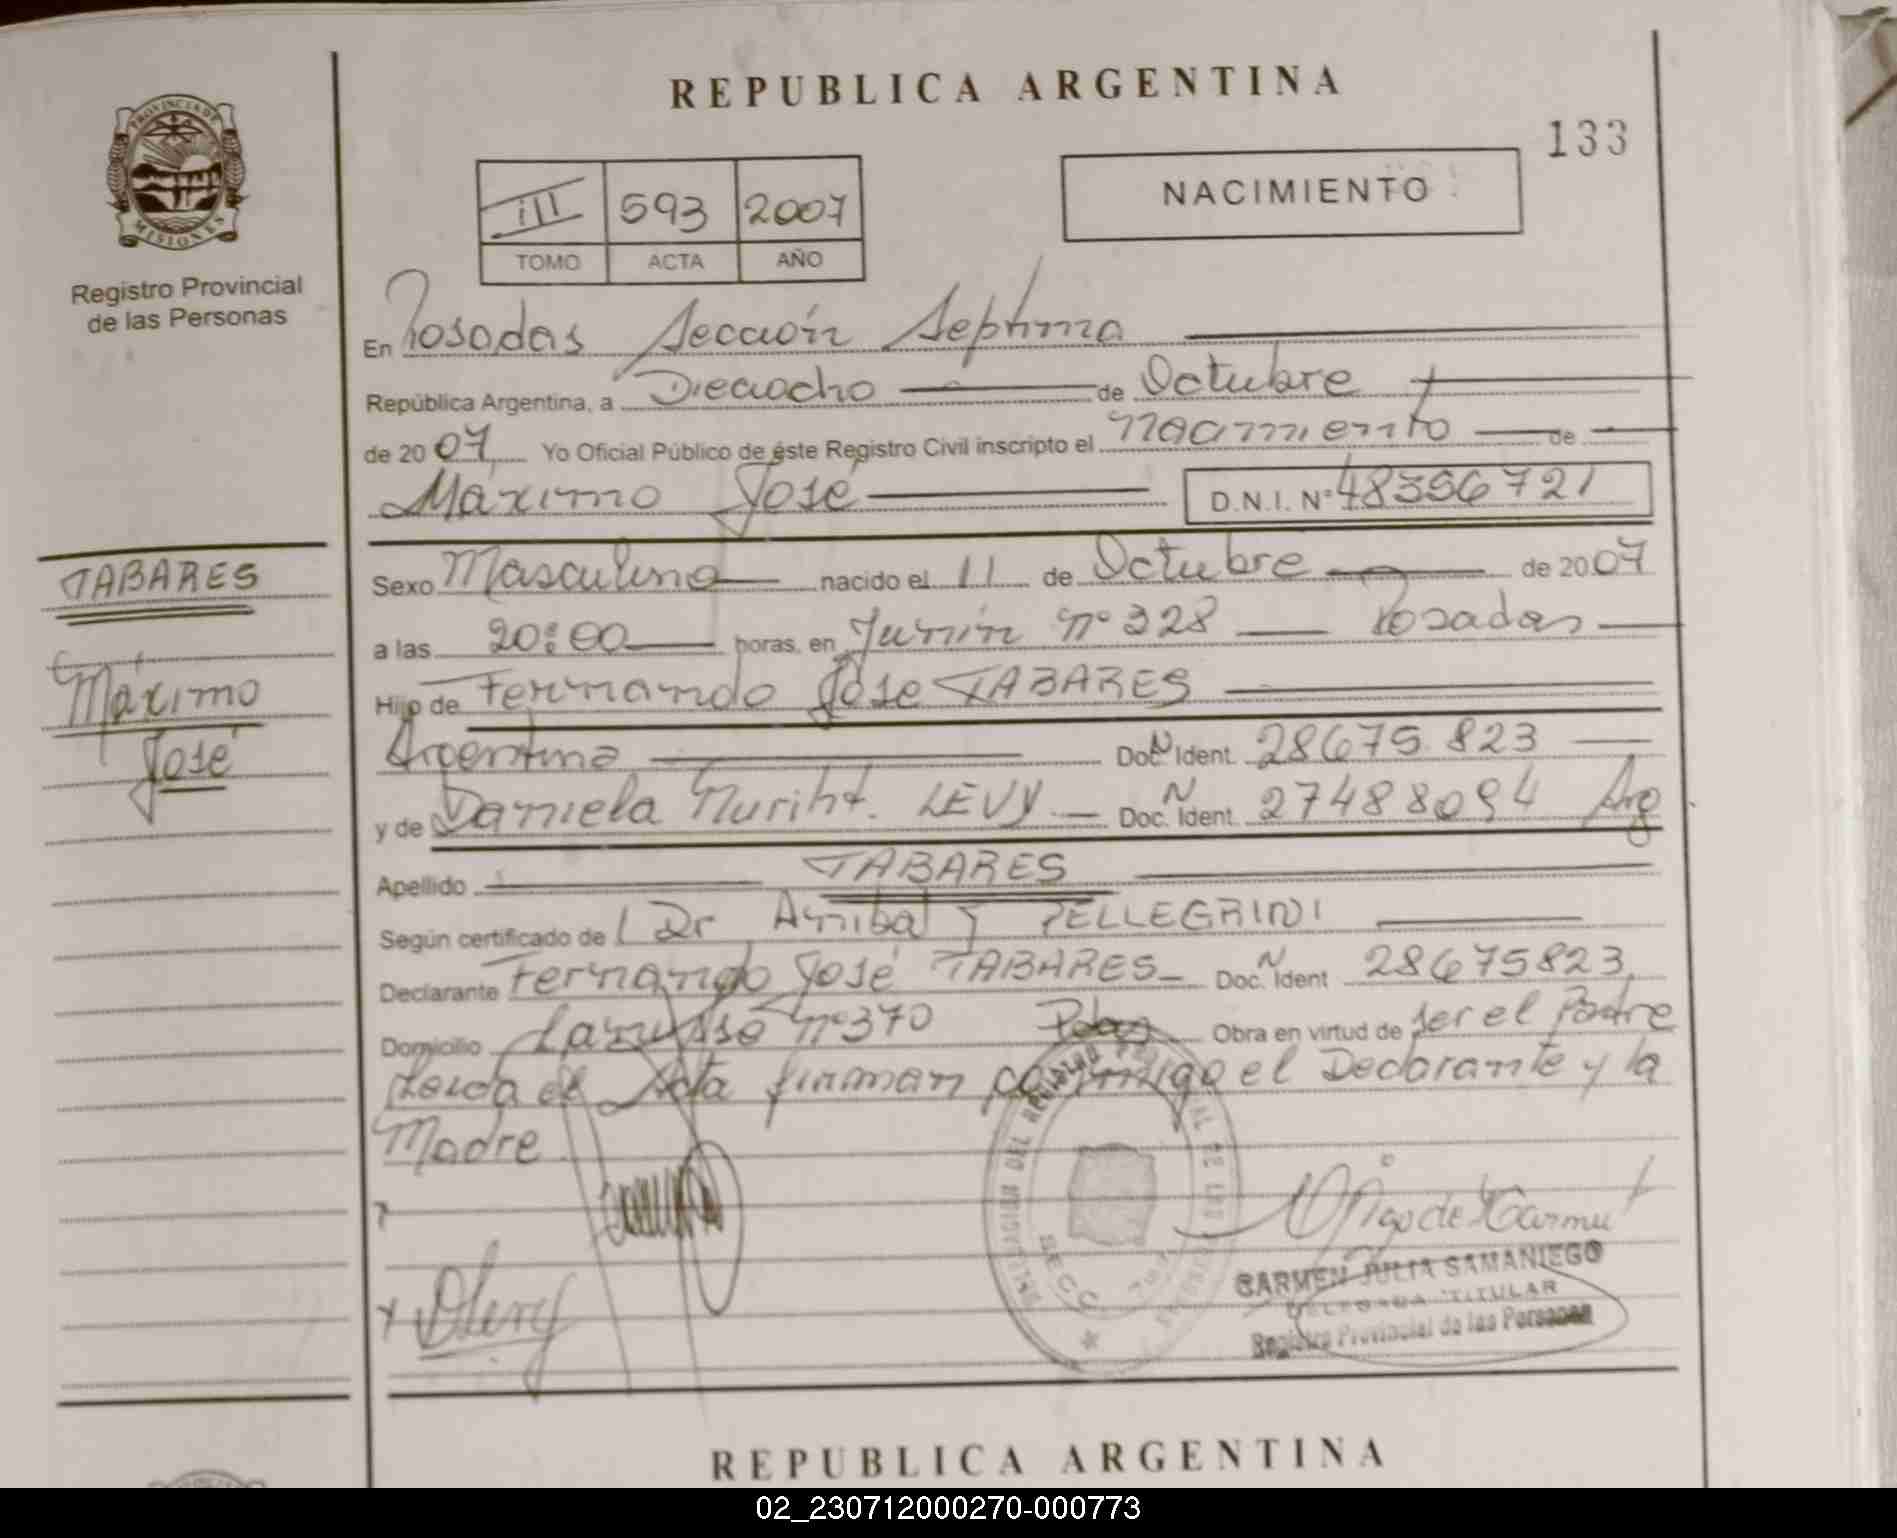 REPUBLICA ARGENTINA
133
PROVINCIA DE
MISIONES
Registro Provincial
de las Personas
III 593 2007
TOMO ACTA AÑO
NACIMIENTO
En Posadas Sección Septima
República Argentina, a Dieciocho de Octubre
de 2007, Yo Oficial Público de éste Registro Civil inscripto el Nacimiento de
Máximo José D.N.I. Nº 48356721
TABARES
Máximo
José
Sexo Masculino nacido el 11 de Octubre de 2007
a las 20:00 horas, en Junín nº 328 Posadas
Hijo de Fernando José TABARES
Argentino Doc. N Ident. 28675.823
y de Daniela LEVY Doc. N Ident. 27488094 Arg
Apellido TABARES
Según certificado de Dr Anibal J PELLEGRINI
Declarante Fernando José TABARES Doc. N Ident 28675823
Domicilio nº 370 Obra en virtud de ser el Padre
Leida el Acta firman conmigo el Declarante y la
Madre
CARMEN JULIA SAMANIEGO
DELEGADA TITULAR
Registro Provincial de las Personas
REPUBLICA ARGENTINA
02_230712000270-000773